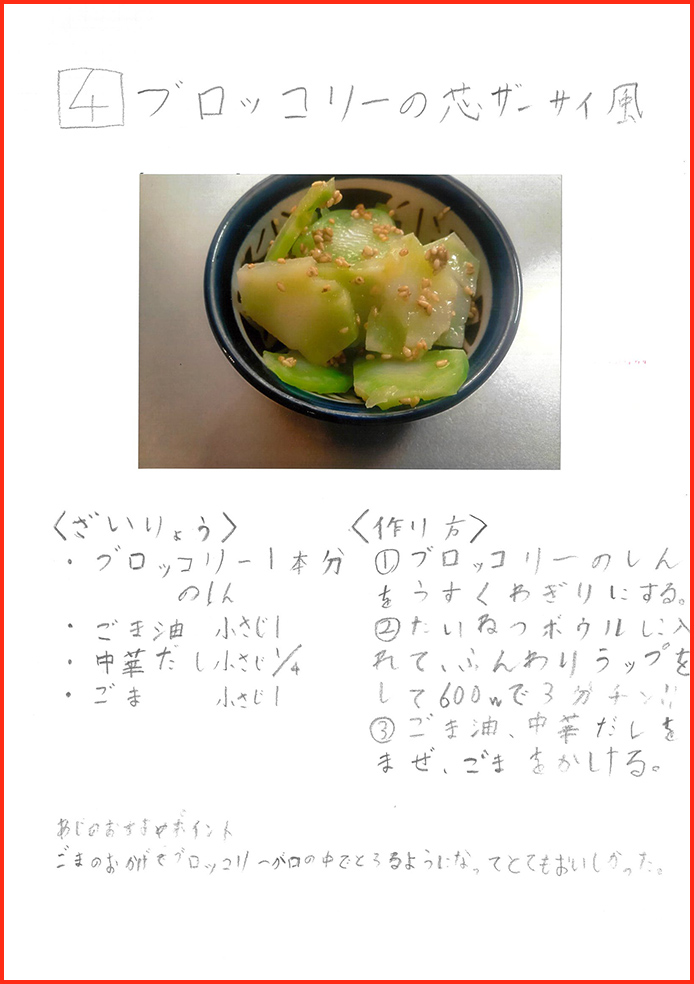 4 ブロッコリーの芯ザーサイ風
〈ざいりょう〉
・ブロッコリー1本分
のしん
・ごま油 小さじ1
・中華だし小さじ1/4
・ごま 小さじ1
〈作り方〉
①ブロッコリーのしん
をうすくわぎりにする。
②たいねつボウルに入
れて、ふんわりラップを
して600wで3分チン!!
③ごま油、中華だしを
まぜ、ごまをかける。
あじのおすすめポイント
ごまのおかげでブロッコリーが口の中でとろるようになってとてもおいしかった。